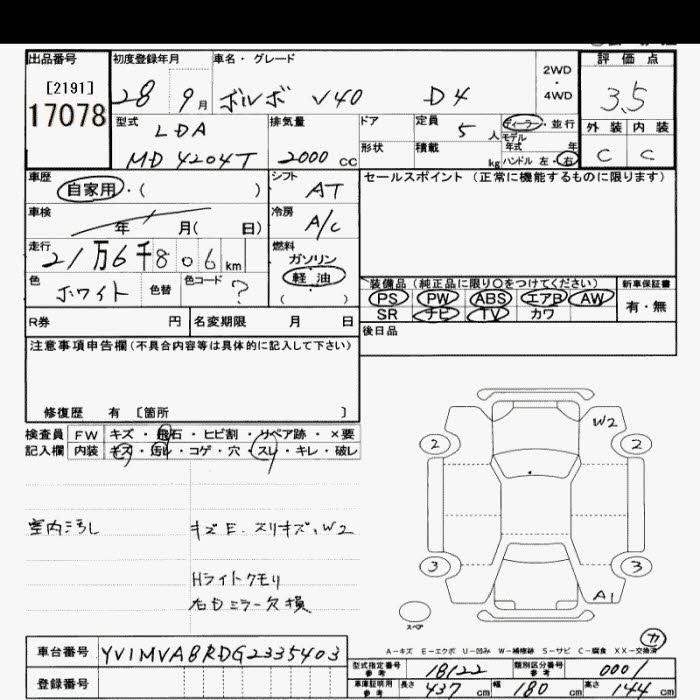 出品番号 初度登録年月 車名・グレード 2WD・4WD 評価点
[2191]
17078 28 9月 ボルボ V40 D4 3.5
型式 LDA 排気量 ドア 定員 5人 ディーラー・並行 外装 内装
MD4204T 2000cc 形状 積載 kg モデル年式 年 C C
ハンドル 左・右
車歴 自家用・( ) シフト AT セールスポイント (正常に機能するものに限ります)
車検 年 月( 日) 冷房 A/C
走行 21万6千806km 燃料 ガソリン
軽油
( )
色 ホワイト 色替 色コード ?
装備品 (純正品に限り○をつけてください) 新車保証書
PS PW ABS エアB AW 有・無
SR ナビ TV カワ
R券 円 名変期限 月 日 後日品
注意事項申告欄(不具合内容等は具体的に記入して下さい)
修復歴 有 〔箇所 〕
検査員 FW キズ・飛石・ヒビ割・リペア跡・×要
記入欄 内装 キズ・汚レ・コゲ・穴・スレ・キレ・破レ
W2
2 2
室内汚し キズE.スリキズ、W2
3 3
Hライトクモリ
右ドミラー欠損
A1
スペア
A-キズ E-エクボ U-凹み W-補修跡 S-サビ C-腐食 XX-交換済
カ
車台番号 YV1MVA8RDG2335403
型式指定番号 参考 18122 類別区分番号 参考 0001
登録番号 車庫証明用 参考 長さ 437cm 幅 180cm 高さ 144cm